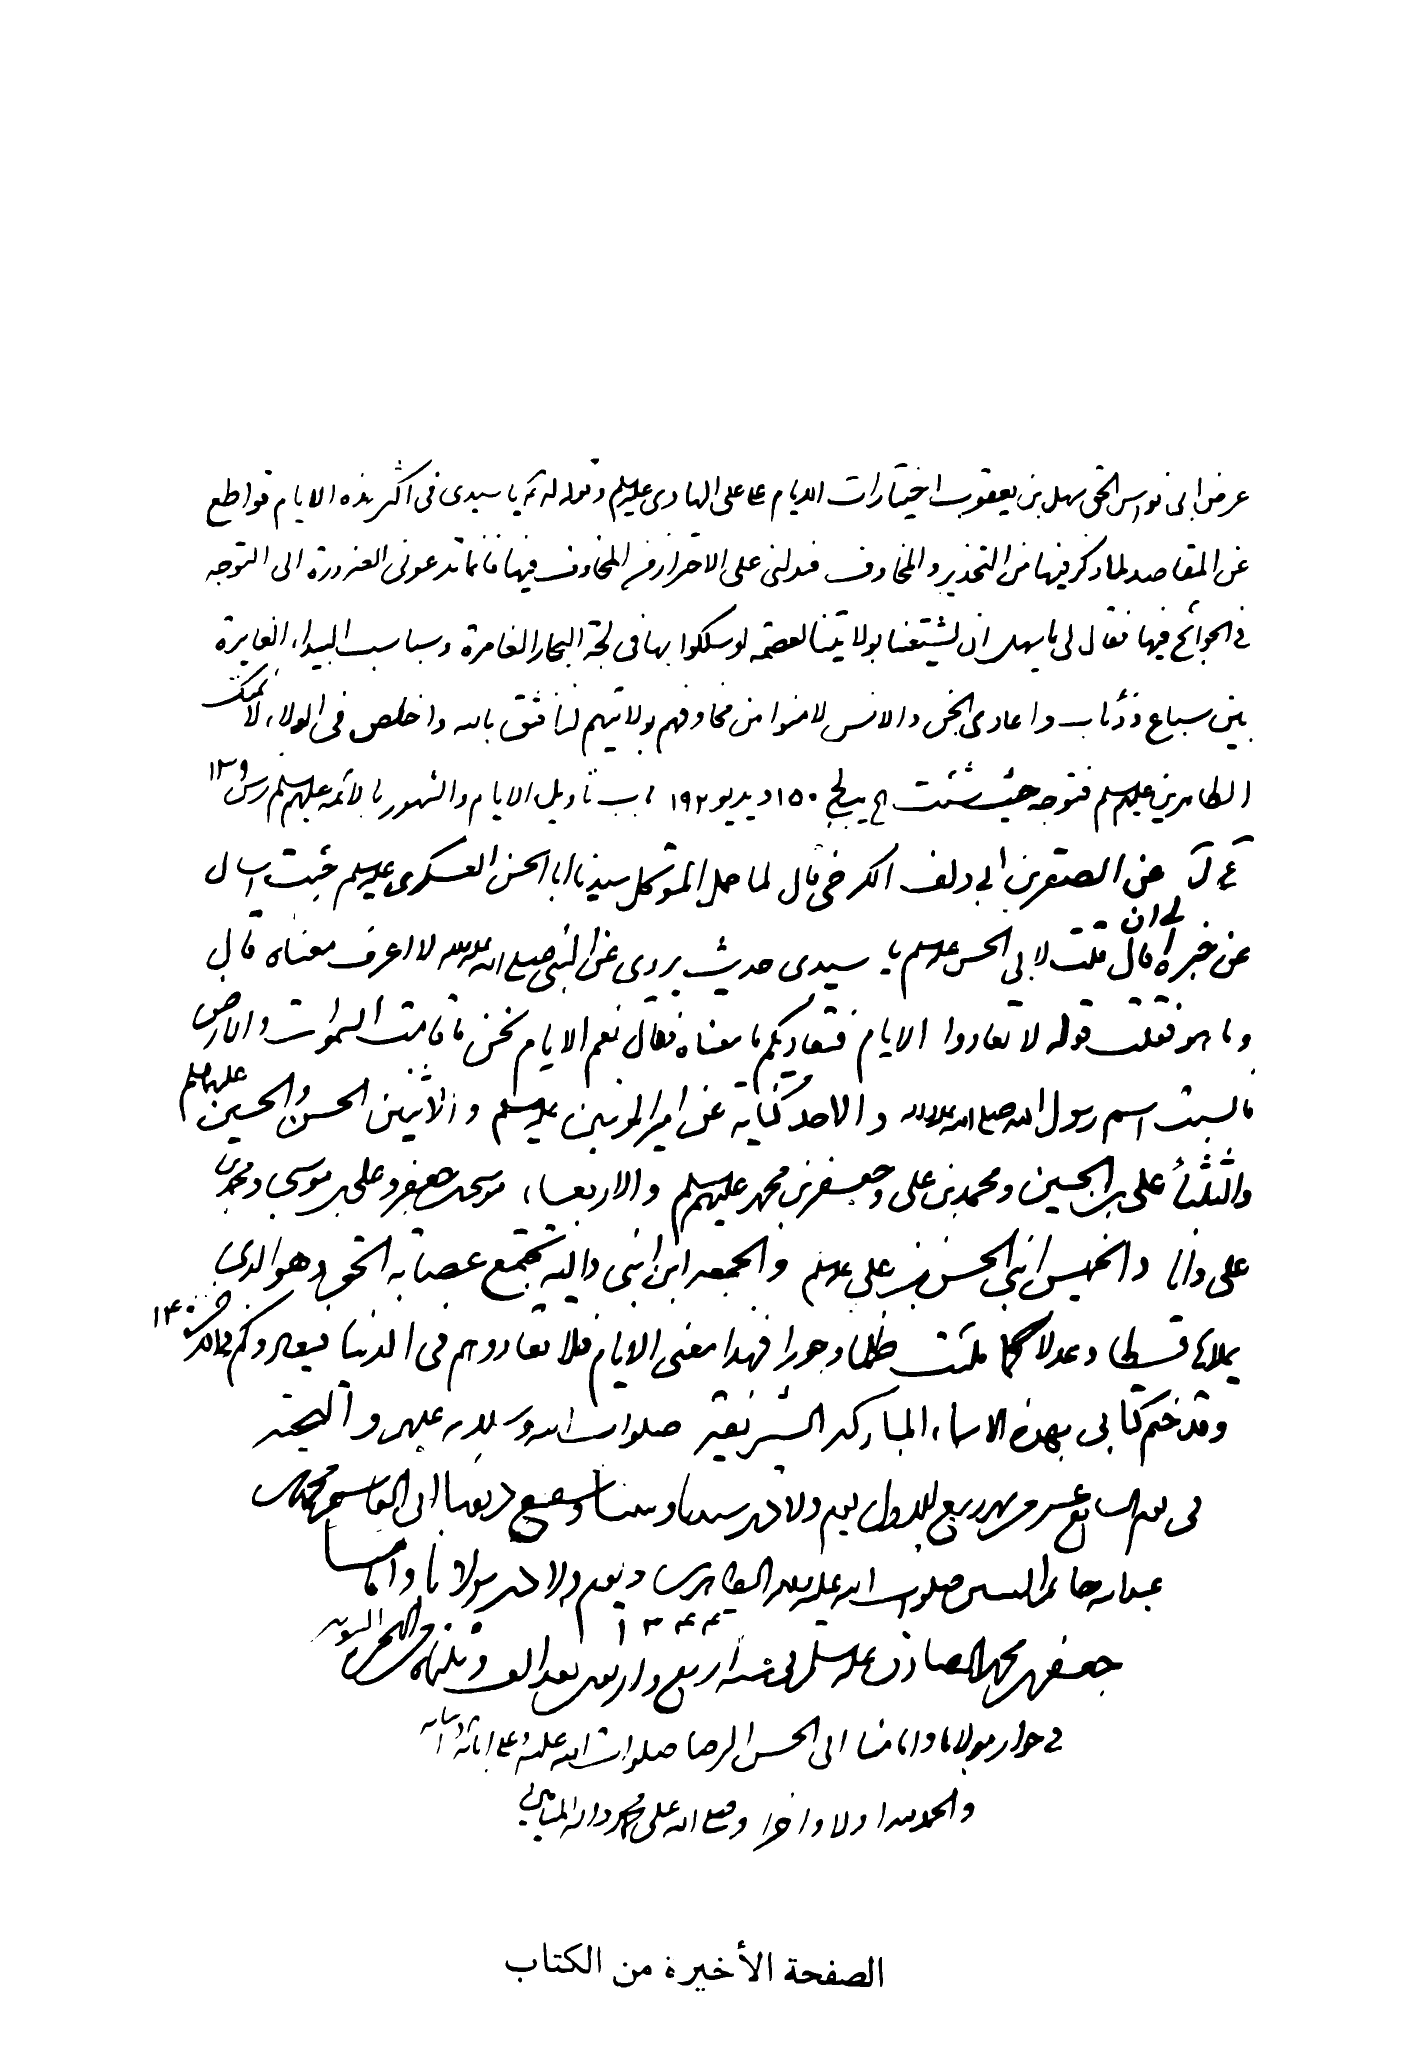 عرض ابى نواس الحق سهل بن يعقوب اختيارات الايام على على الهادى عليه‌السلم وقوله له يا سيدى فى اكثر هذه الايام قواطع
عن المقاصد لما ذكر فيها من التحذير والمخاوف فدلنى على الاحتراز من المخاوف فيها فانما تدعونى الضرورة الى التوجه
فى الحوائج فيها فقال لى يا سهل ان لشيعتنا بولايتنا لعصمة لو سلكوا بها فى لجة البحار الغامرة وسباسب البيداء الغايرة
بين سباع وذئاب واعادى الجن والانس لامنوا من مخاوفهم بولايتهم لنا فثق بالله واخلص فى الولاء لائمتك
الطاهرين عليهم‌السلم فتوجه حيث شئت ١٥٠ ١٩٢ باب تأويل الايام والشهور بالائمة عليهم‌السلم ١٣٩
عن الصقر بن ابى دلف الكرخى قال لما حمل المتوكل سيدنا ابا الحسن العسكرى عليه‌السلم جئت اسال
عن خبره الى ان قال قلت لابى الحسن عليه‌السلم يا سيدى حديث يروى عن النبى صلى الله عليه واله لا اعرف معناه قال
وما هو فقلت قوله لا تعادوا الايام فتعاديكم ما معناه فقال نعم الايام نحن ما قامت السموات والارض
فالسبت اسم رسول الله صلى الله عليه واله والاحد كناية عن امير المؤمنين عليه‌السلم والاثنين الحسن والحسين عليهما‌السلم
والثلثاء على بن الحسين ومحمد بن على وجعفر بن محمد عليهم‌السلم والاربعاء موسى بن جعفر وعلى بن موسى ومحمد بن
على وانا والخميس ابنى الحسن بن على عليه‌السلم والجمعه ابن ابنى واليه تجتمع عصابة الحق وهو الذى
يملاها قسطا وعدلا كما ملئت ظلما وجورا فهذا معنى الايام فلا تعادوهم فى الدنيا فيعادوكم فى الاخرة ١٤٠
وقد ختم كتابى بهذه الاسماء المباركه الشريفة صلوات الله وسلامه عليهم والتحية
فى يوم السابع عشر من شهر ربيع الاول يوم ولادة سيدنا ونبينا وشفيع ذنوبنا ابى القاسم محمد بن
عبدالله خاتم النبيين صلوات الله عليه واله الطاهرين ويوم ولادة مولانا وامامنا
١٣٤٤
جعفر بن محمد الصادق عليه السلم فى سنة اربع واربعين بعد الف وثلثمائة من الهجرة النبوية
فى جوار مولانا وامامنا ابى الحسن الرضا صلوات الله عليه وعلى ابائه وابنائه
والحمد لله اولا واخرا وصلى الله على محمد واله الميامين
الصفحة الأخيرة من الكتاب